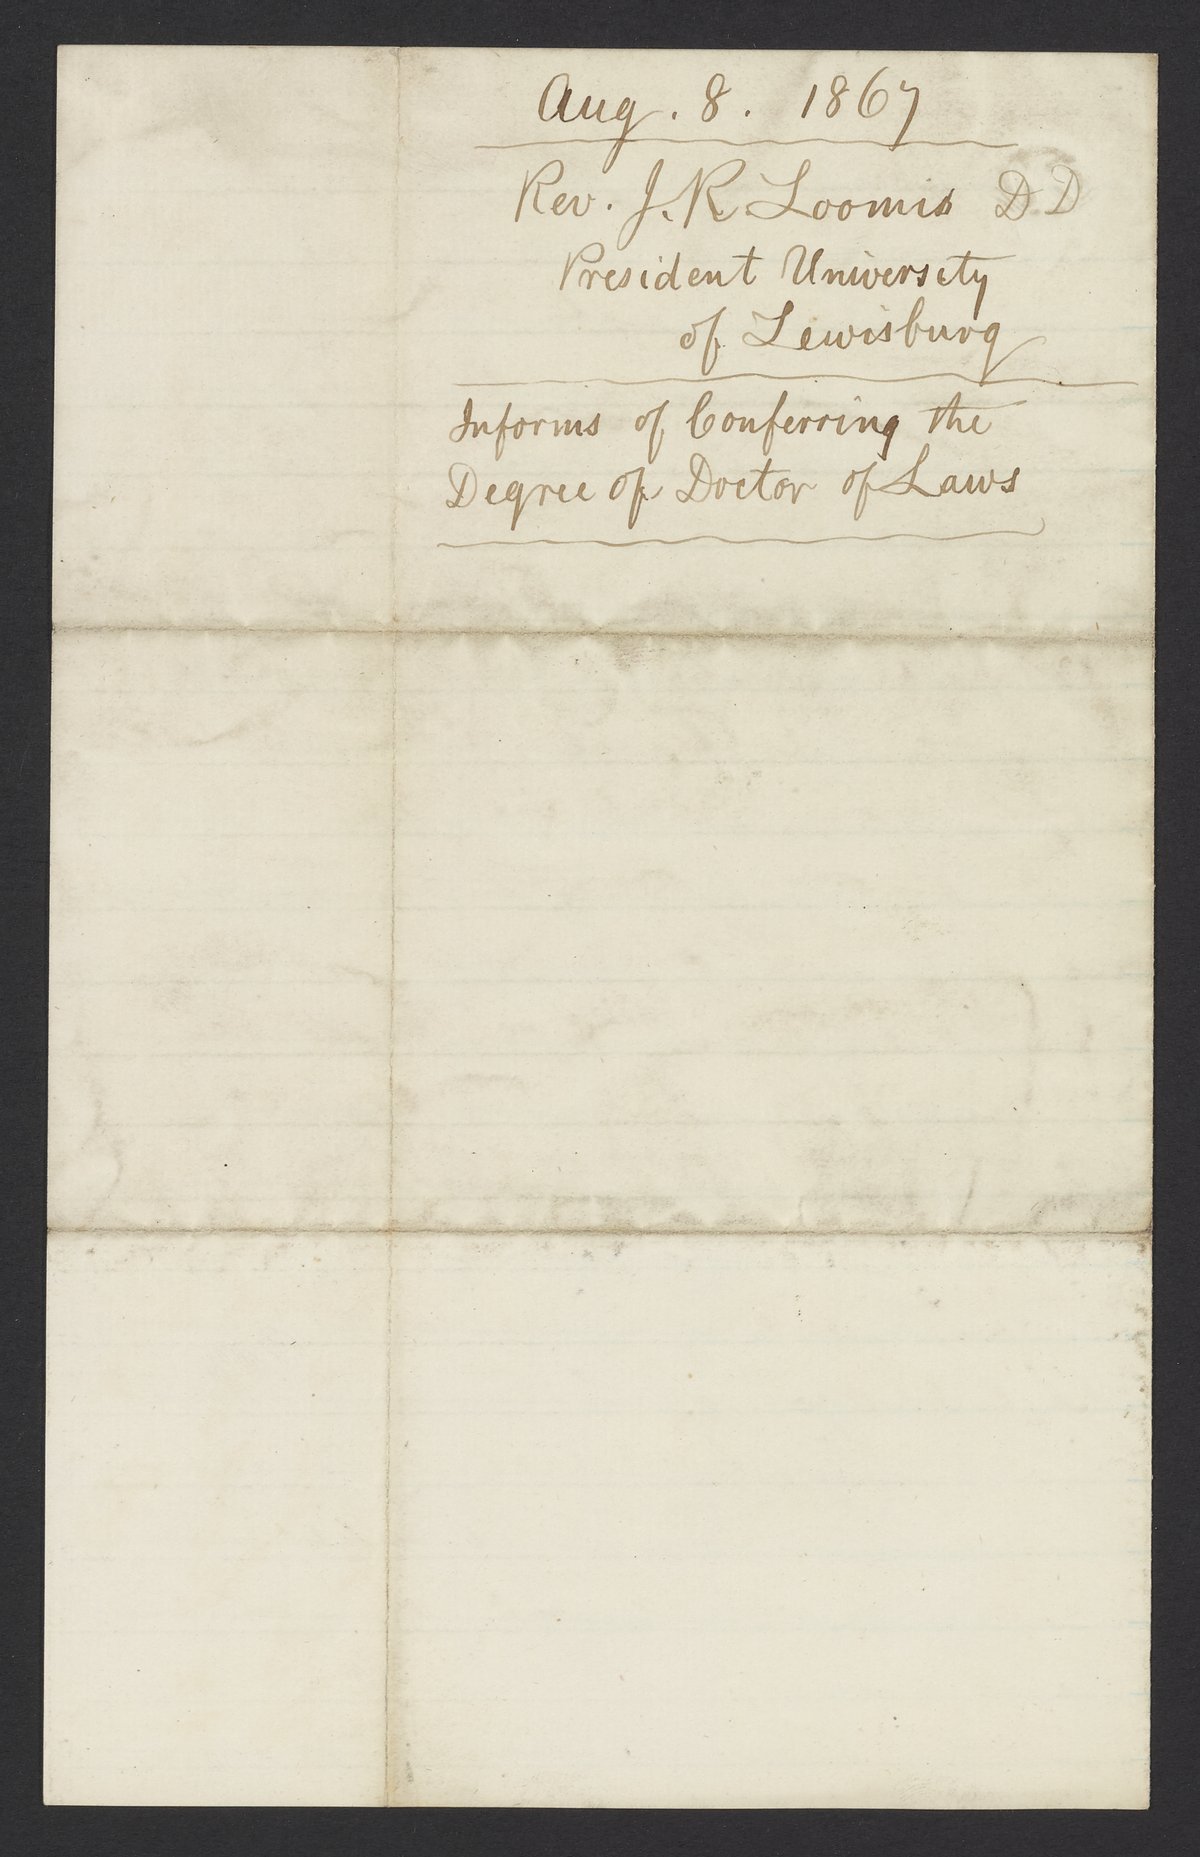 Aug. 8. 1867
Rev. J. R. Loomis D D
President University
of Lewisburg
Informs of Conferring the
Degree of Doctor of Laws